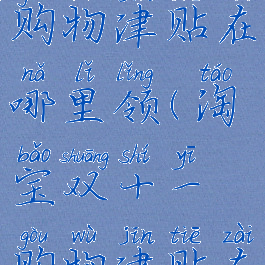 购物津贴在
nǎ lǐ lǐng táo
哪里领(淘
bǎo shuāng shí yī
宝双十一
gòu wù jīn tiē zài
购物津贴在